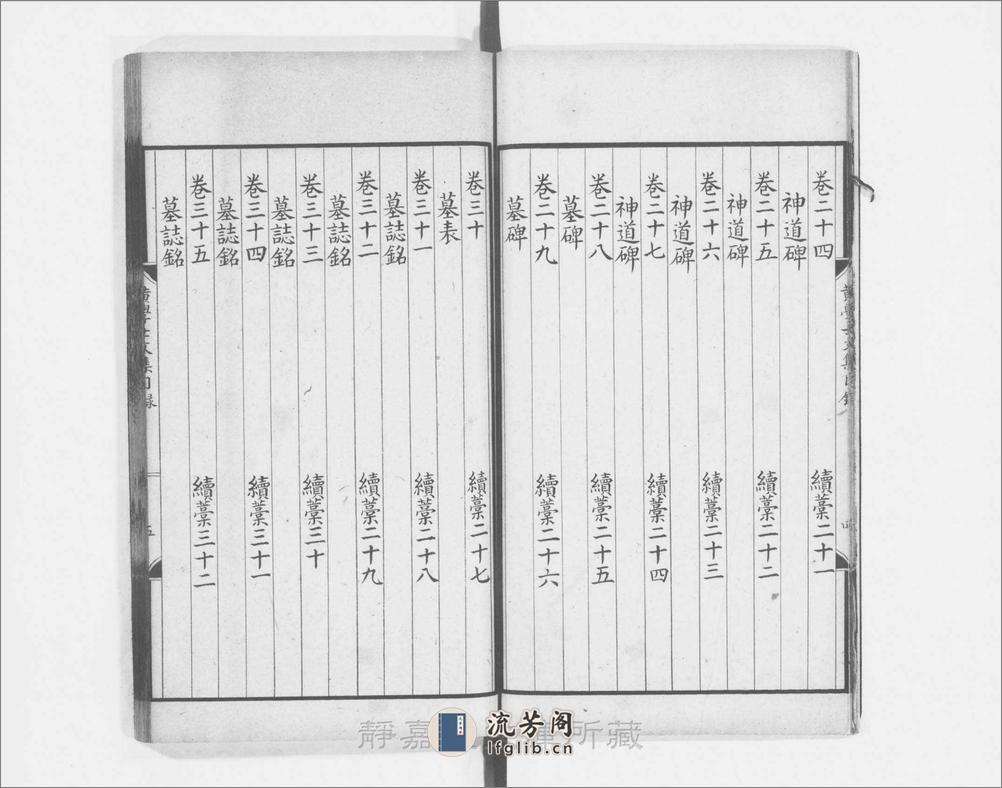 卷二十四　續藁二十一
神道碑
卷二十五　續藁二十二
神道碑
卷二十六　續藁二十三
神道碑
卷二十七　續藁二十四
神道碑
卷二十八　續藁二十五
墓碑
卷二十九　續藁二十六
墓碑
卷三十　續藁二十七
墓表
卷三十一　續藁二十八
墓誌銘
卷三十二　續藁二十九
墓誌銘
卷三十三　續藁三十
墓誌銘
卷三十四　續藁三十一
墓誌銘
卷三十五　續藁三十二
墓誌銘
五
靜嘉
所藏
流芳阁
lfglib.cn